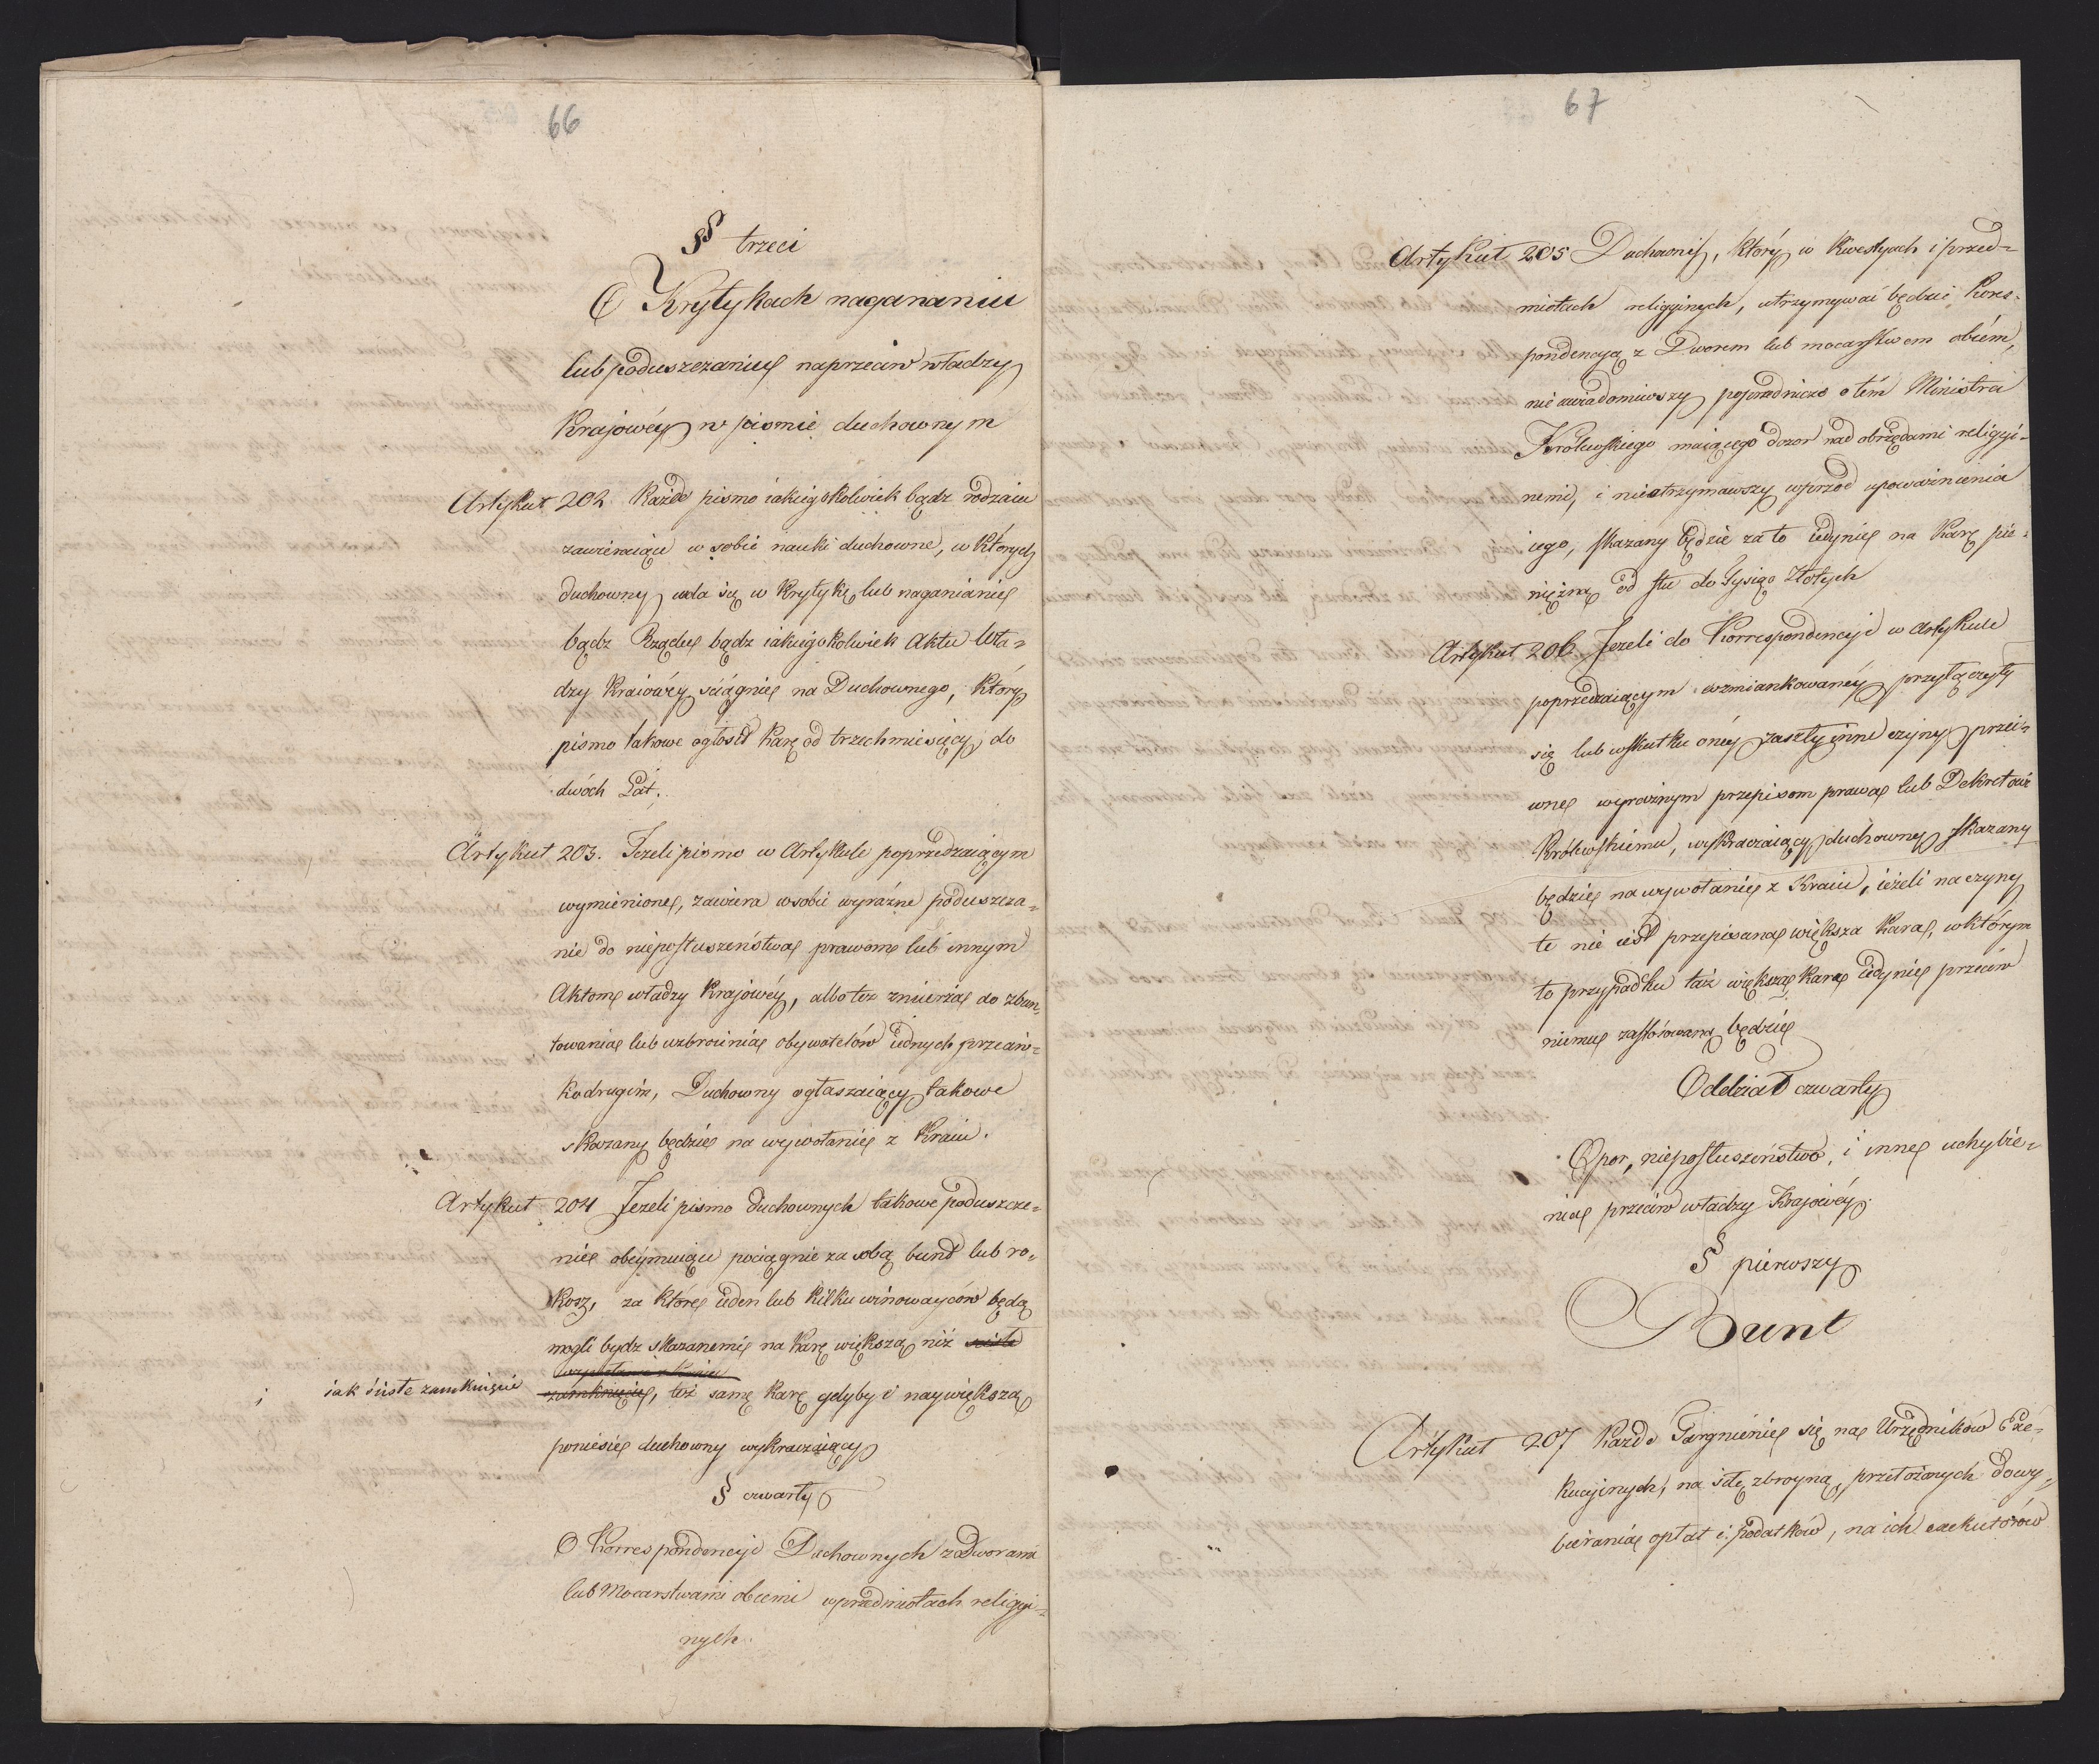 66
§§ trzeci
O Krytykach nagananiu
lub poduszczaniu naprzeciw władzy
Krajowéy w piśmie duchownym
Artykuł 202 Każde pismo iakiegokolwiek bądz rodzaiu
zawieraiące w sobie nauki duchowne, w których
duchowny uda się w Krytykę lub naganianie
bądz Rządu bądz iakiegokolwiek Aktu Wła=
dzy Kraiowéy ściągnie na Duchownego, który
pismo takowe ogłosił Karę od trzech miesięcy do
dwóch Lat.
Artykuł 203. Jeżeli pismo w Artykule poprzedzaiącym
wymienione, zawiera w sobie wyraźne poduszcza=
nie do nieposłuszeństwa prawom lub innym
Aktom władzy Krajowéy, albo też zmierza do zbun=
towania lub uzbroienia obywatelów iednych przeciw=
ko drugim, Duchowny ogłaszaiący takowe
skazany będzie na wywołanie z Kraiu.
Artykuł 204 Jeżeli pismo duchownych takowe poduszcze=
nie obeymuiące pociągnie za sobą bunt lub ro=
kosz, za które ieden lub kilku winowayców będą
mogli bydz skazanemi na karę większą niż ściśle
wywołanie z Kraiu
iak ściste zamknięcie zamknięcie, toż samę karę gdyby i naywiększą
poniesie duchowny wykraczaiący
§ czwarty
O Korrespondencyi Duchownych z Dworami
lub Mocarstwami obcemi w przedmiotach religyi=
nych
67
Artykuł 205 Duchowny, który w Kwestyach i przed=
miotach religyinych, utrzymywać będzie Kores=
pondencyą z Dworem lub mocarstwem obcém,
nie uwiadomiwszy poprzedniczo o tém Ministra
Królewskiego maiącego dozor nad obrzędami religyi=
nemi, i nieotrzymawszy wprzod upoważnienia
iego, skazany będzie za to iedynie na Karę pie=
niężną od stu do Tysiąca Złotych
Artykuł 206 Jeżeli do Korrespondencyi w Artykule
poprzedzaiącym wzmiankowanéy przyłączyły
się lub w skutku onéy zaszły inne czyny przei=
wne wyraźnym przepisom prawa lub Dekretowi
Królewskiemu, wykraczaiący duchowny skazany
będzie na wywołanie z Kraiu, ieżeli na czyny
te nie iest przepisana większa kara, w którym
to przypadku taż większa kara iedynie przeciw
niemu zastósowaną będzie
Oddział czwarty
Opor, nieposłuszeństwo, i inne uchybie=
nia przeciw władzy Krajowéy.
§ pierwszy
Bunt
Artykuł 207 Każde Targnienie się na Urzędników Exe=
kucyinych, na siłę zbroyną, przełożonych do wy=
bierania opłat i podatków, na ich exekutorów